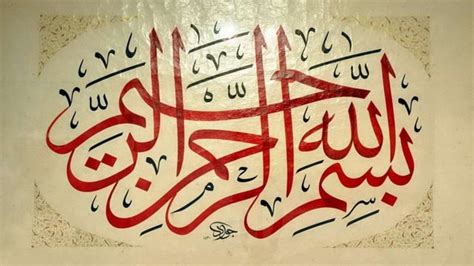 بسم الله الرحمن الرحيم
جوادی